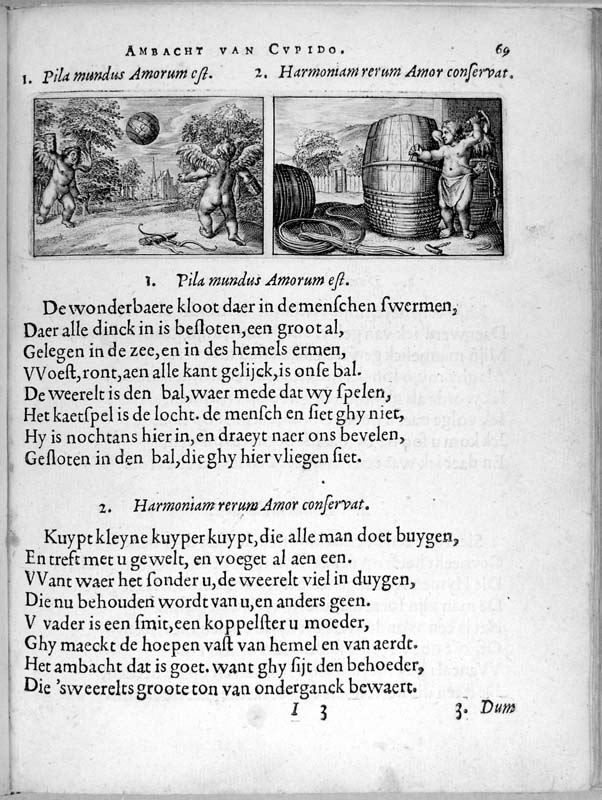 AMBACHT VAN CVPIDO. 69
1. Pila mundus Amorum eſt. 2. Harmoniam rerum Amor conſervat.
1. Pila mundus Amorum eſt.
De wonderbaere kloot daer in de menſchen ſwermen,
Daer alle dinck in is beſloten, een groot al,
Gelegen in de zee, en in des hemels ermen,
VVoeſt, ront, aen alle kant gelijck, is onſe bal.
De weerelt is den bal, waer mede dat wy ſpelen,
Het kaetſpel is de locht. de menſch en ſiet ghy niet,
Hy is nochtans hier in, en draeyt naer ons bevelen,
Geſloten in den bal, die ghy hier vliegen ſiet.
2. Harmoniam rerum Amor conſervat.
Kuypt kleyne kuyper kuypt, die alle man doet buygen,
En treft met u gewelt, en voeget al aen een.
VVant waer het ſonder u, de weerelt viel in duygen,
Die nu behouden wordt van u, en anders geen.
V vader is een ſmit, een koppelſter u moeder,
Ghy maeckt de hoepen vaſt van hemel en van aerdt.
Het ambacht dat is goet. want ghy ſijt den behoeder,
Die 'sweerelts groote ton van onderganck bewaert.
I 3 3. Dum